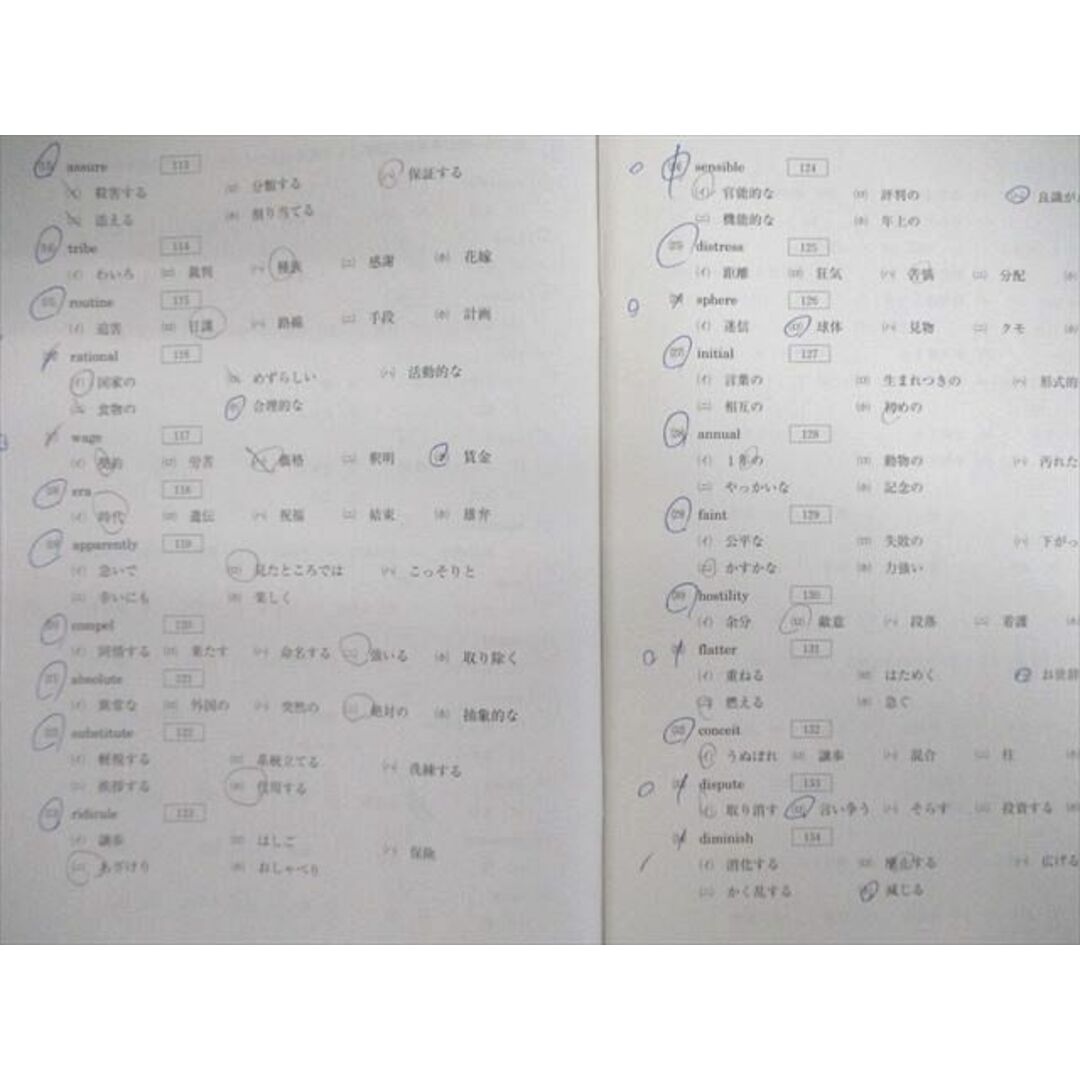 assure 113
殺害する (ロ) 分類する 保証する
添える (ホ) 割り当てる
(14) tribe 114
(イ) わいろ (ロ) 裁判 (ハ) 種族 (ニ) 感謝 (ホ) 花嫁
(15) routine 115
(イ) 迫害 (ロ) 日課 (ハ) 路線 (ニ) 手段 (ホ) 計画
rational 116
(イ) 国家の めずらしい (ハ) 活動的な
食物の (ホ) 合理的な
wage 117
(イ) 契約 (ロ) 労苦 価格 (ニ) 釈明 賃金
(18) era 118
(イ) 時代 (ロ) 遺伝 (ハ) 祝福 (ニ) 結束 (ホ) 雄弁
(19) apparently 119
(イ) 急いで (ロ) 見たところでは (ハ) こっそりと
(ニ) 幸いにも (ホ) 楽しく
(20) compel 120
(イ) 同情する (ロ) 果たす (ハ) 命名する (ニ) 強いる (ホ) 取り除く
(21) absolute 121
(イ) 異常な (ロ) 外国の (ハ) 突然の (ニ) 絶対の (ホ) 抽象的な
(22) substitute 122
(イ) 軽視する (ロ) 系統立てる (ハ) 洗練する
(ニ) 挨拶する (ホ) 代用する
(23) ridicule 123
(イ) 譲歩 (ロ) はしご (ハ) 保険
(ニ) あざけり (ホ) おしゃべり
sensible 124
(イ) 官能的な (ロ) 評判の 良識が
(ニ) 機能的な (ホ) 年上の
(25) distress 125
(イ) 距離 (ロ) 狂気 (ハ) 苦悩 (ニ) 分配
sphere 126
(イ) 迷信 (ロ) 球体 (ハ) 見物 (ニ) クモ
(27) initial 127
(イ) 言葉の (ロ) 生まれつきの (ハ) 形式的
(ニ) 相互の (ホ) 初めの
(28) annual 128
(イ) 1年の (ロ) 動物の (ハ) 汚れた
(ニ) やっかいな (ホ) 記念の
(29) faint 129
(イ) 公平な (ロ) 失敗の (ハ) 下がっ
(ニ) かすかな (ホ) 力強い
(30) hostility 130
(イ) 余分 (ロ) 敵意 (ハ) 段落 (ニ) 看護
flatter 131
(イ) 重ねる (ロ) はためく お世辞
(ニ) 燃える (ホ) 急ぐ
(32) conceit 132
(イ) うぬぼれ (ロ) 譲歩 (ハ) 混合 (ニ) 柱
dispute 133
(イ) 取り消す (ロ) 言い争う (ハ) そらす (ニ) 投資する
diminish 134
(イ) 消化する (ロ) 廃止する (ハ) 広げる
(ニ) かく乱する (ホ) 減じる